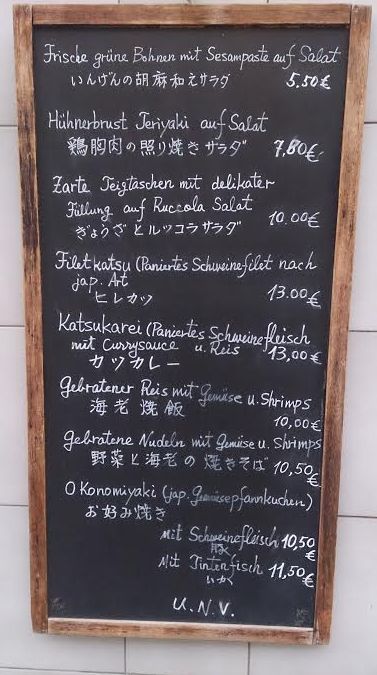 Frische grüne Bohnen mit Sesampaste auf Salat
いんげんの胡麻和えサラダ 5,50€
Hühnerbrust Teriyaki auf Salat
鶏胸肉の照り焼きサラダ 7,80€
Zarte Teigtaschen mit delikater
Füllung auf Ruccola Salat
ぎょうざとルッコラサラダ 10.00€
Filet katsu (Paniertes Schweinefilet nach
jap. Art
ヒレカツ 13.00€
Katsukarei (Paniertes Schweinefleisch
mit Currysauce u. Reis 13,00€
カツカレー
Gebratener Reis mit Gemüse u. Shrimps
海老焼飯 10,00€
Gebratene Nudeln mit Gemüse u. Shrimps
野菜と海老の焼きそば 10,50€
O Konomiyaki (jap. Gemüsepfannkuchen)
お好み焼き
mit Schweinefleisch 10,50€
Mit Tintenfisch 11,50€
U.N.V.